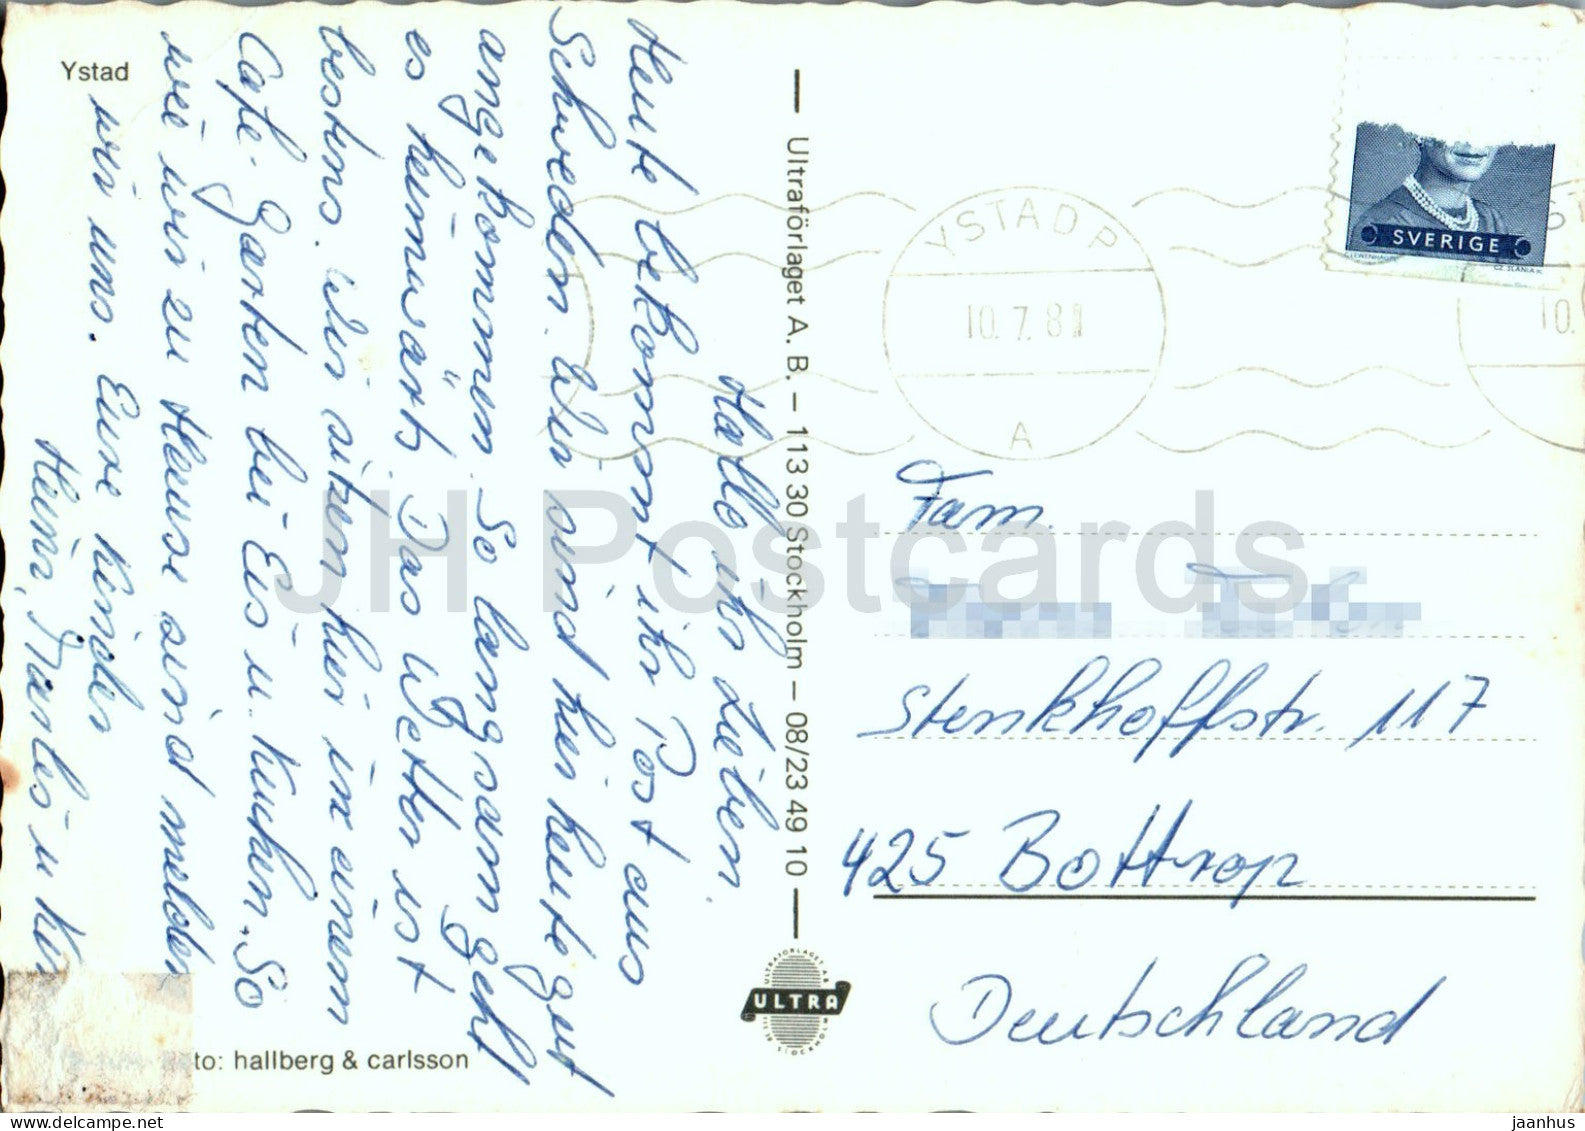 Ystad
Hallo ihr Lieben.
Heute bekommt ihr Post aus
Schweden. Wir sind hier heute gut
angekommen. So langsam geht
es heimwärts. Das Wetter ist
bestens. Wir sitzen hier in einem
Cafe-Garten bei Eis u. Kuchen. So
wie wir zu Hause sind melden
wir uns. Eure Kinder
Heim, u
Ultraförlaget A. B. – 113 30 Stockholm – 08/23 49 10
ULTRAFÖRLAGET AB
ULTRA
STOCKHOLM
to: hallberg & carlsson
SVERIGE
CZ. SLANIA SC.
YSTAD P
10.7.81
A
10.
Fam.
Stenkhoffstr. 117
425 Bottrop
Deutschland
JH Postcards
www.delcampe.net
jaanhus